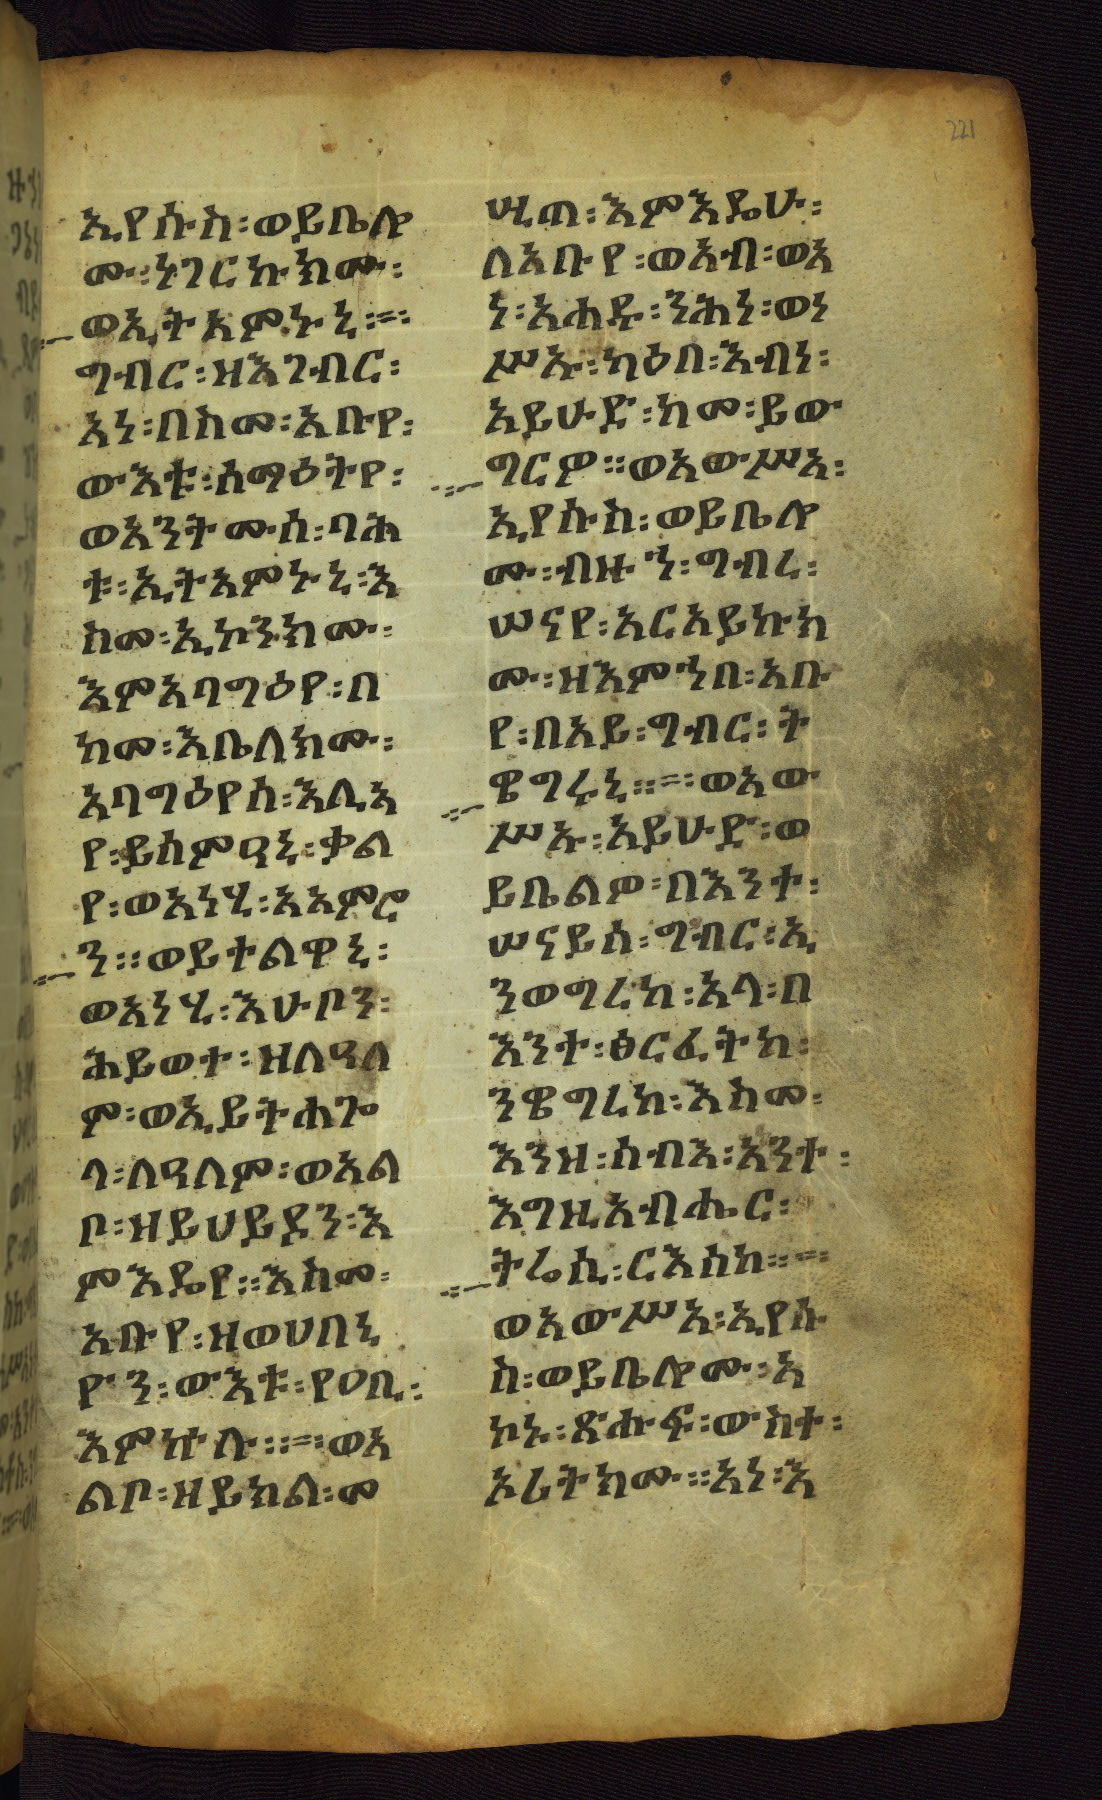 221
ኢየሱስ፡ወይቤሎ
ሙ፡ነገርኩክሙ፡
ወኢትአምኑኒ፡፡
ግብር፡ዘእገብር፡
አነ፡በስመ፡አቡየ፡
ውእቱ፡ሰማዕትየ፡
ወአንትሙሰ፡ባሕ
ቱ፡ኢትአምኑኒ፡እ
ስመ፡ኢኮንክሙ፡
እምአባግዕየ፡በ
ከመ፡እቤለክሙ፡
አባግዕየሰ፡እሊአ
የ፡ይሰምዓኒ፡ቃል
የ፡ወአነሂ፡አአምሮ
ን፡፡ወይተልዋኒ፡
ወአነሂ፡እሁቦን፡
ሕይወተ፡ዘለዓለ
ም፡ወኢይትሐጐ
ላ፡ለዓለም፡ወአል
ቦ፡ዘይሀይደን፡እ
ምእዴየ፡፡እስመ፡
አቡየ፡ዘወሀበኒ
ዮን፡ውእቱ፡የዐቢ፡
እምኵሉ፡፡ወአ
ልቦ፡ዘይክል፡መ
ሢጠ፡እምእዴሁ፡
ለአቡየ፡ወአብ፡ወአ
ነ፡አሐዱ፡ንሕነ፡ወነ
ሥኡ፡ካዕበ፡እብነ፡
አይሁድ፡ከመ፡ይው
ግርዎ፡፡ወአውሥአ፡
ኢየሱስ፡ወይቤሎ
ሙ፡ብዙኀ፡ግብረ፡
ሠናየ፡አርአይኩክ
ሙ፡ዘእምኀበ፡አቡ
የ፡በአይ፡ግብር፡ት
ዌግሩኒ፡፡ወአው
ሥኡ፡አይሁድ፡ወ
ይቤልዎ፡በእንተ፡
ሠናይሰ፡ግብር፡ኢ
ንወግረከ፡አላ፡በ
እንተ፡ፅርፈትከ፡
ንዌግረከ፡እስመ፡
እንዘ፡ሰብእ፡አንተ፡
እግዚአብሔር፡
ትሬሲ፡ርእሰከ፡፡
ወአውሥአ፡ኢየሱ
ስ፡ወይቤሎሙ፡አ
ኮኑ፡ጽሑፍ፡ውስተ፡
ኦሪትክሙ፡፡አነ፡እ